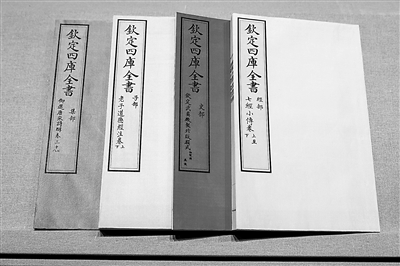 欽定四庫全書
經部
七經小傳卷上至下
欽定四庫全書
史部
欽定武英殿聚珍版程式
欽定四庫全書
子部
老子道德經注卷上下
欽定四庫全書
集部
御選唐宋詩醇卷三十